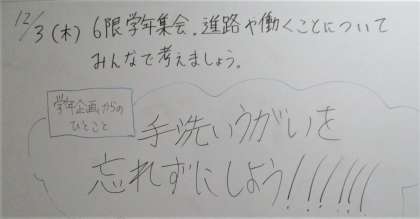 12/3(木) 6限学年集会。進路や働くことについて
みんなで考えましょう。
学年企画からの
ひとこと
手洗いうがいを
忘れずにしよう!!!!!!!